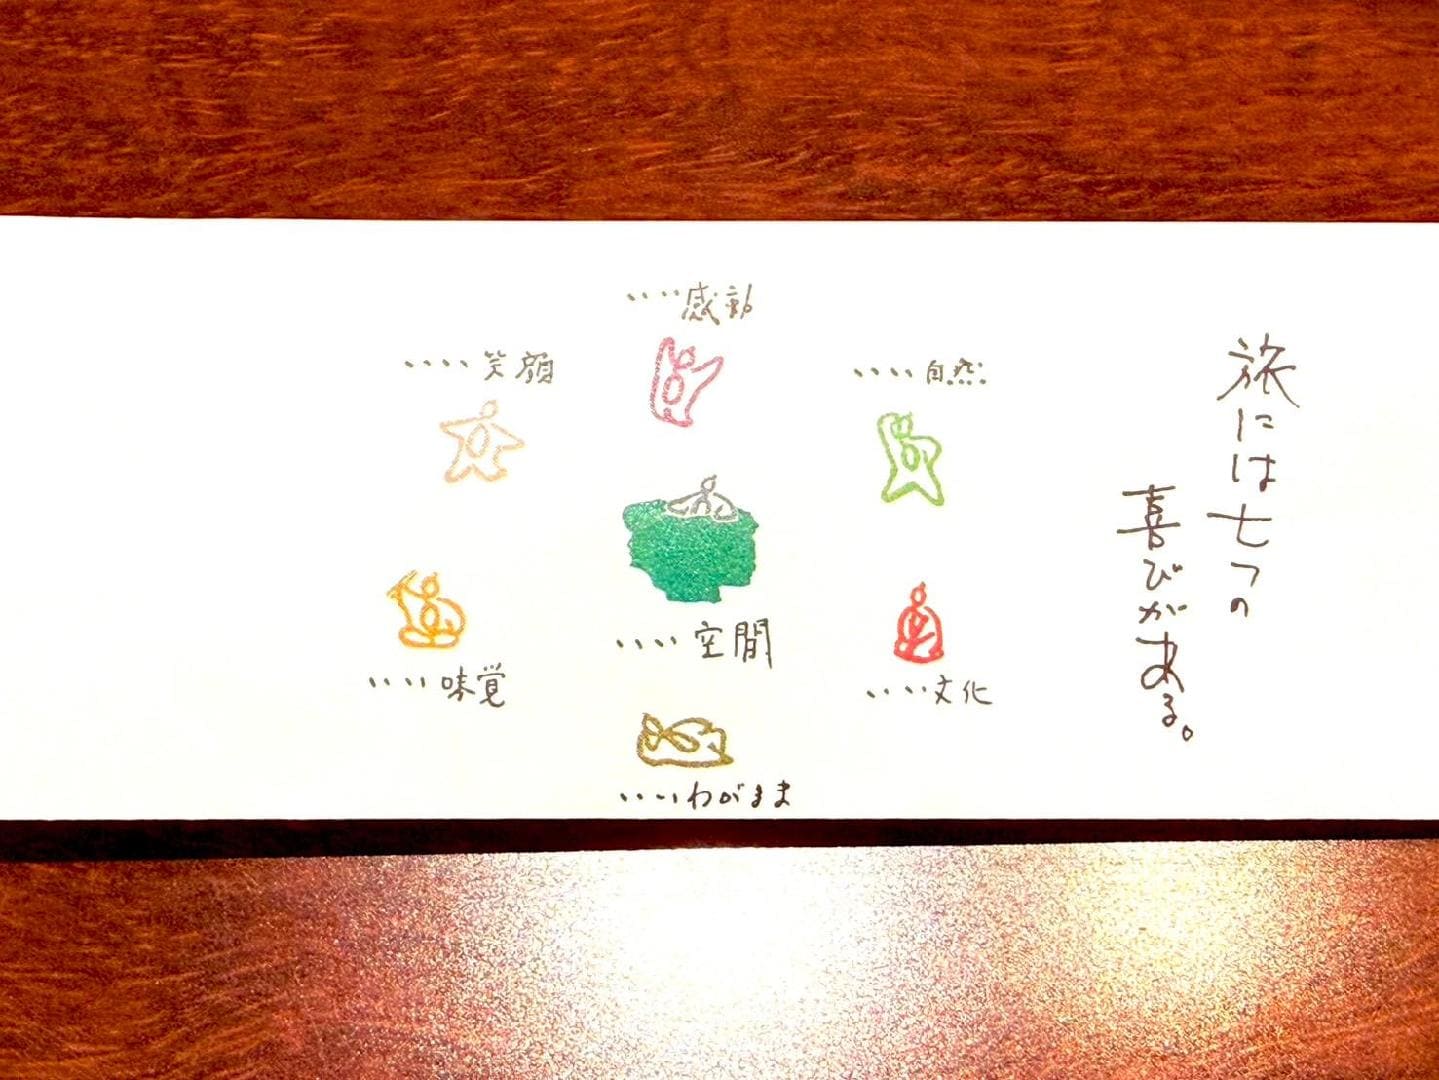 旅には七つの
喜びがある。
‥‥感動
‥‥笑顔
‥‥自然
‥‥空間
‥‥味覚
‥‥文化
‥‥わがまま